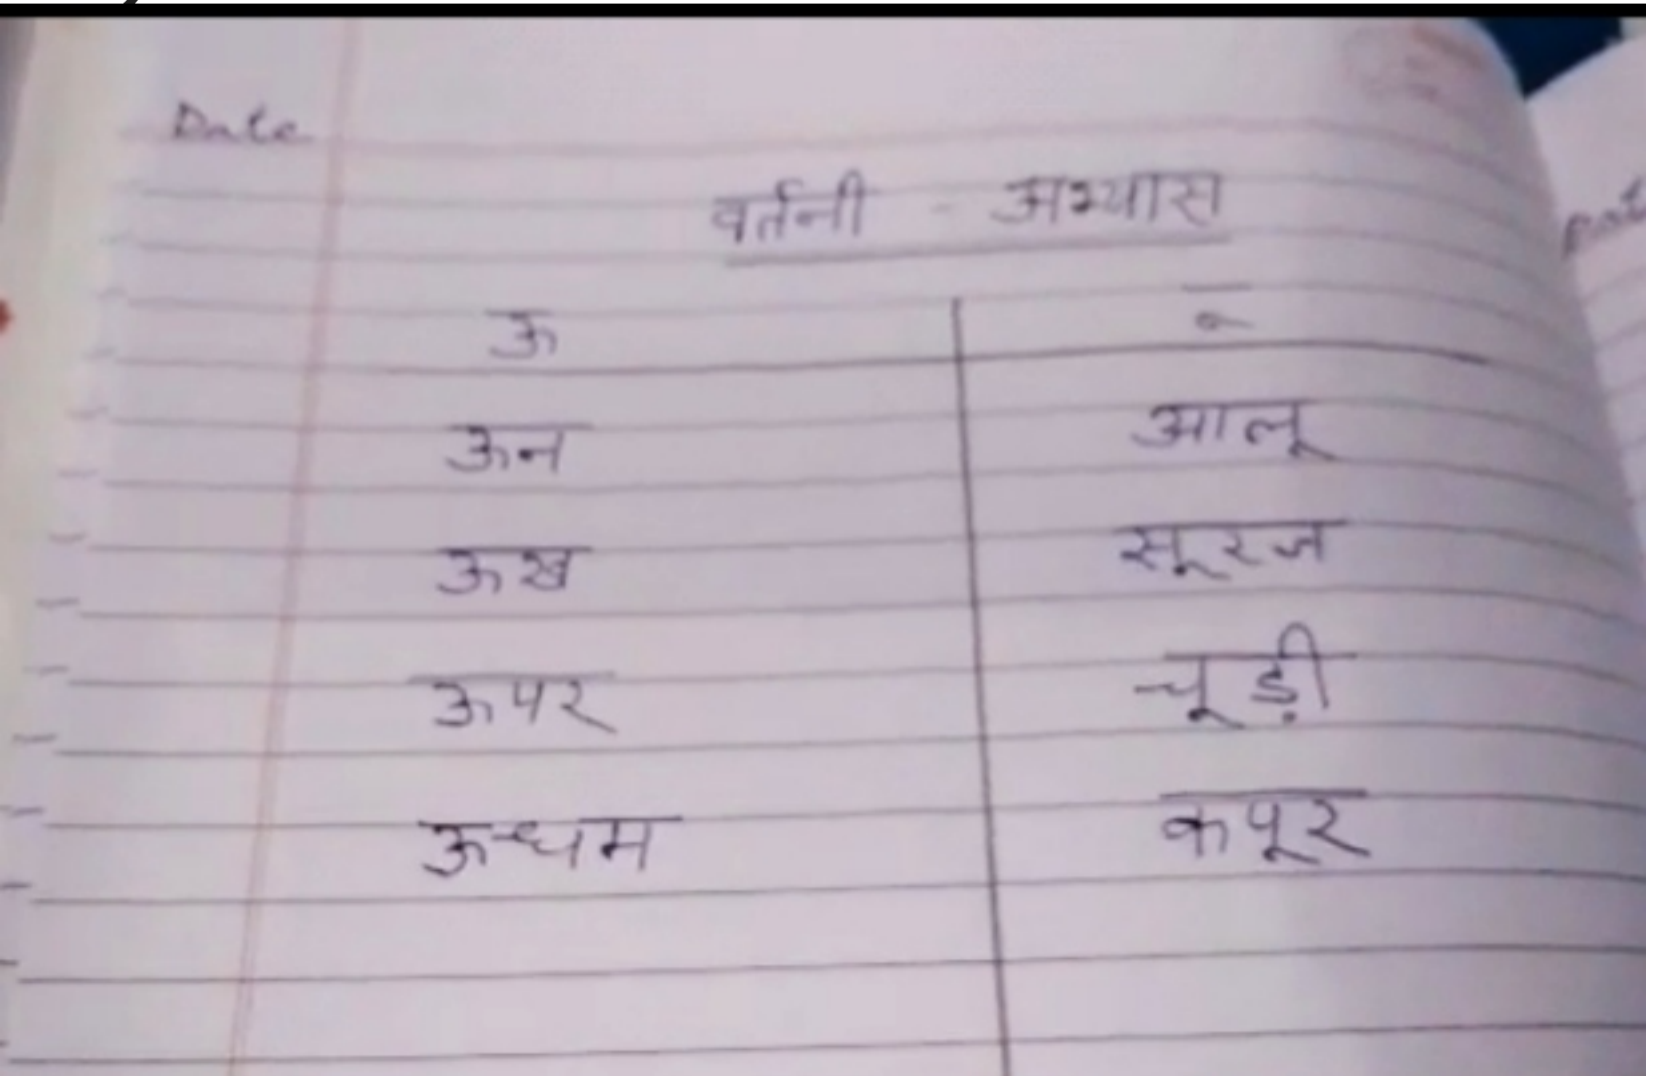 Date
वर्तनी - अभ्यास
ऊ ू
ऊन आलू
ऊख सूरज
ऊपर चूड़ी
ऊधम कपूर